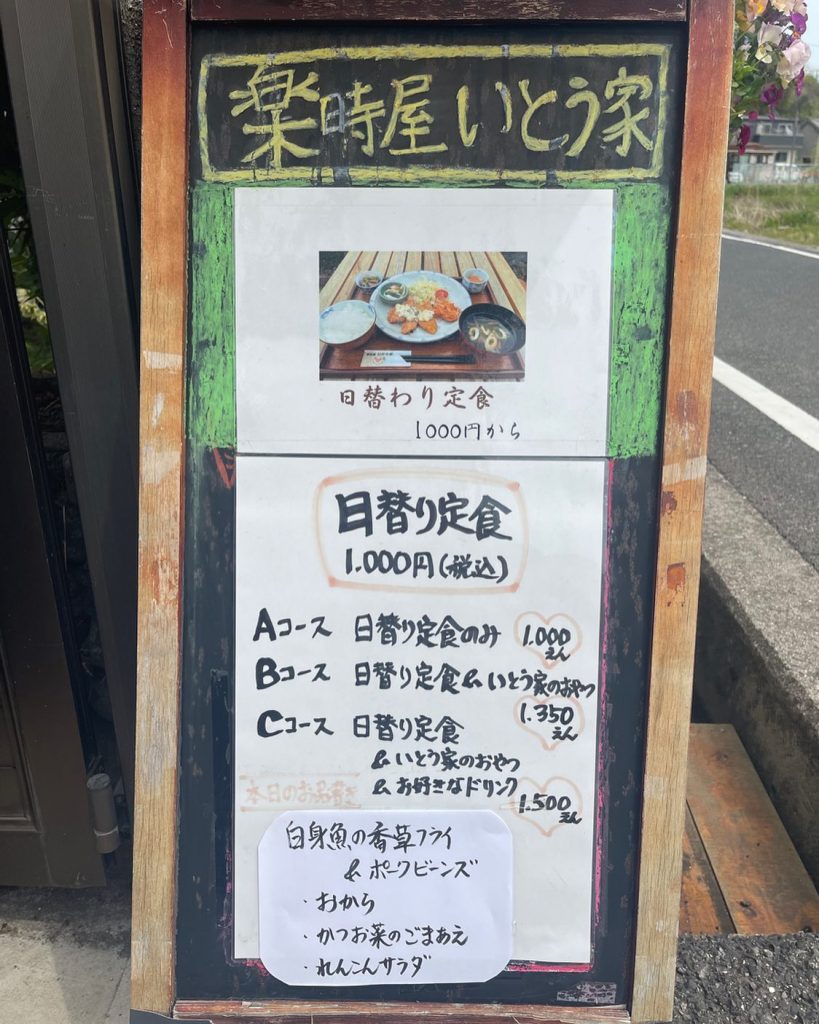 楽時屋 いとう家
日替わり定食
1000円から
日替り定食
1.000円(税込)
Aコース 日替り定食のみ 1.000えん
Bコース 日替り定食&いとう家のおやつ
1.350えん
Cコース 日替り定食
&いとう家のおやつ
&お好きなドリンク
1.500えん
本日のお品書き
白身魚の香草フライ
&ポークビーンズ
・おから
・かつお菜のごまあえ
・れんこんサラダ